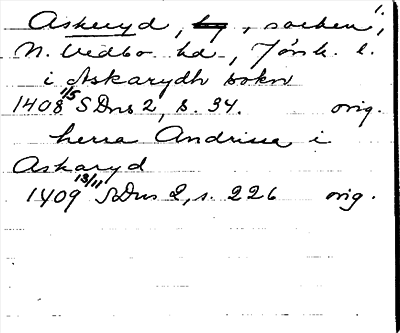 Askeryd, by, socken,
N. Vedbo hd, Jönk. l.
i Askarydh sokn
1408 1/5 SDns 2, s. 34. orig.
herra Andrissa i
Askaryd
1409 13/11 SDns 2, s. 226 orig.